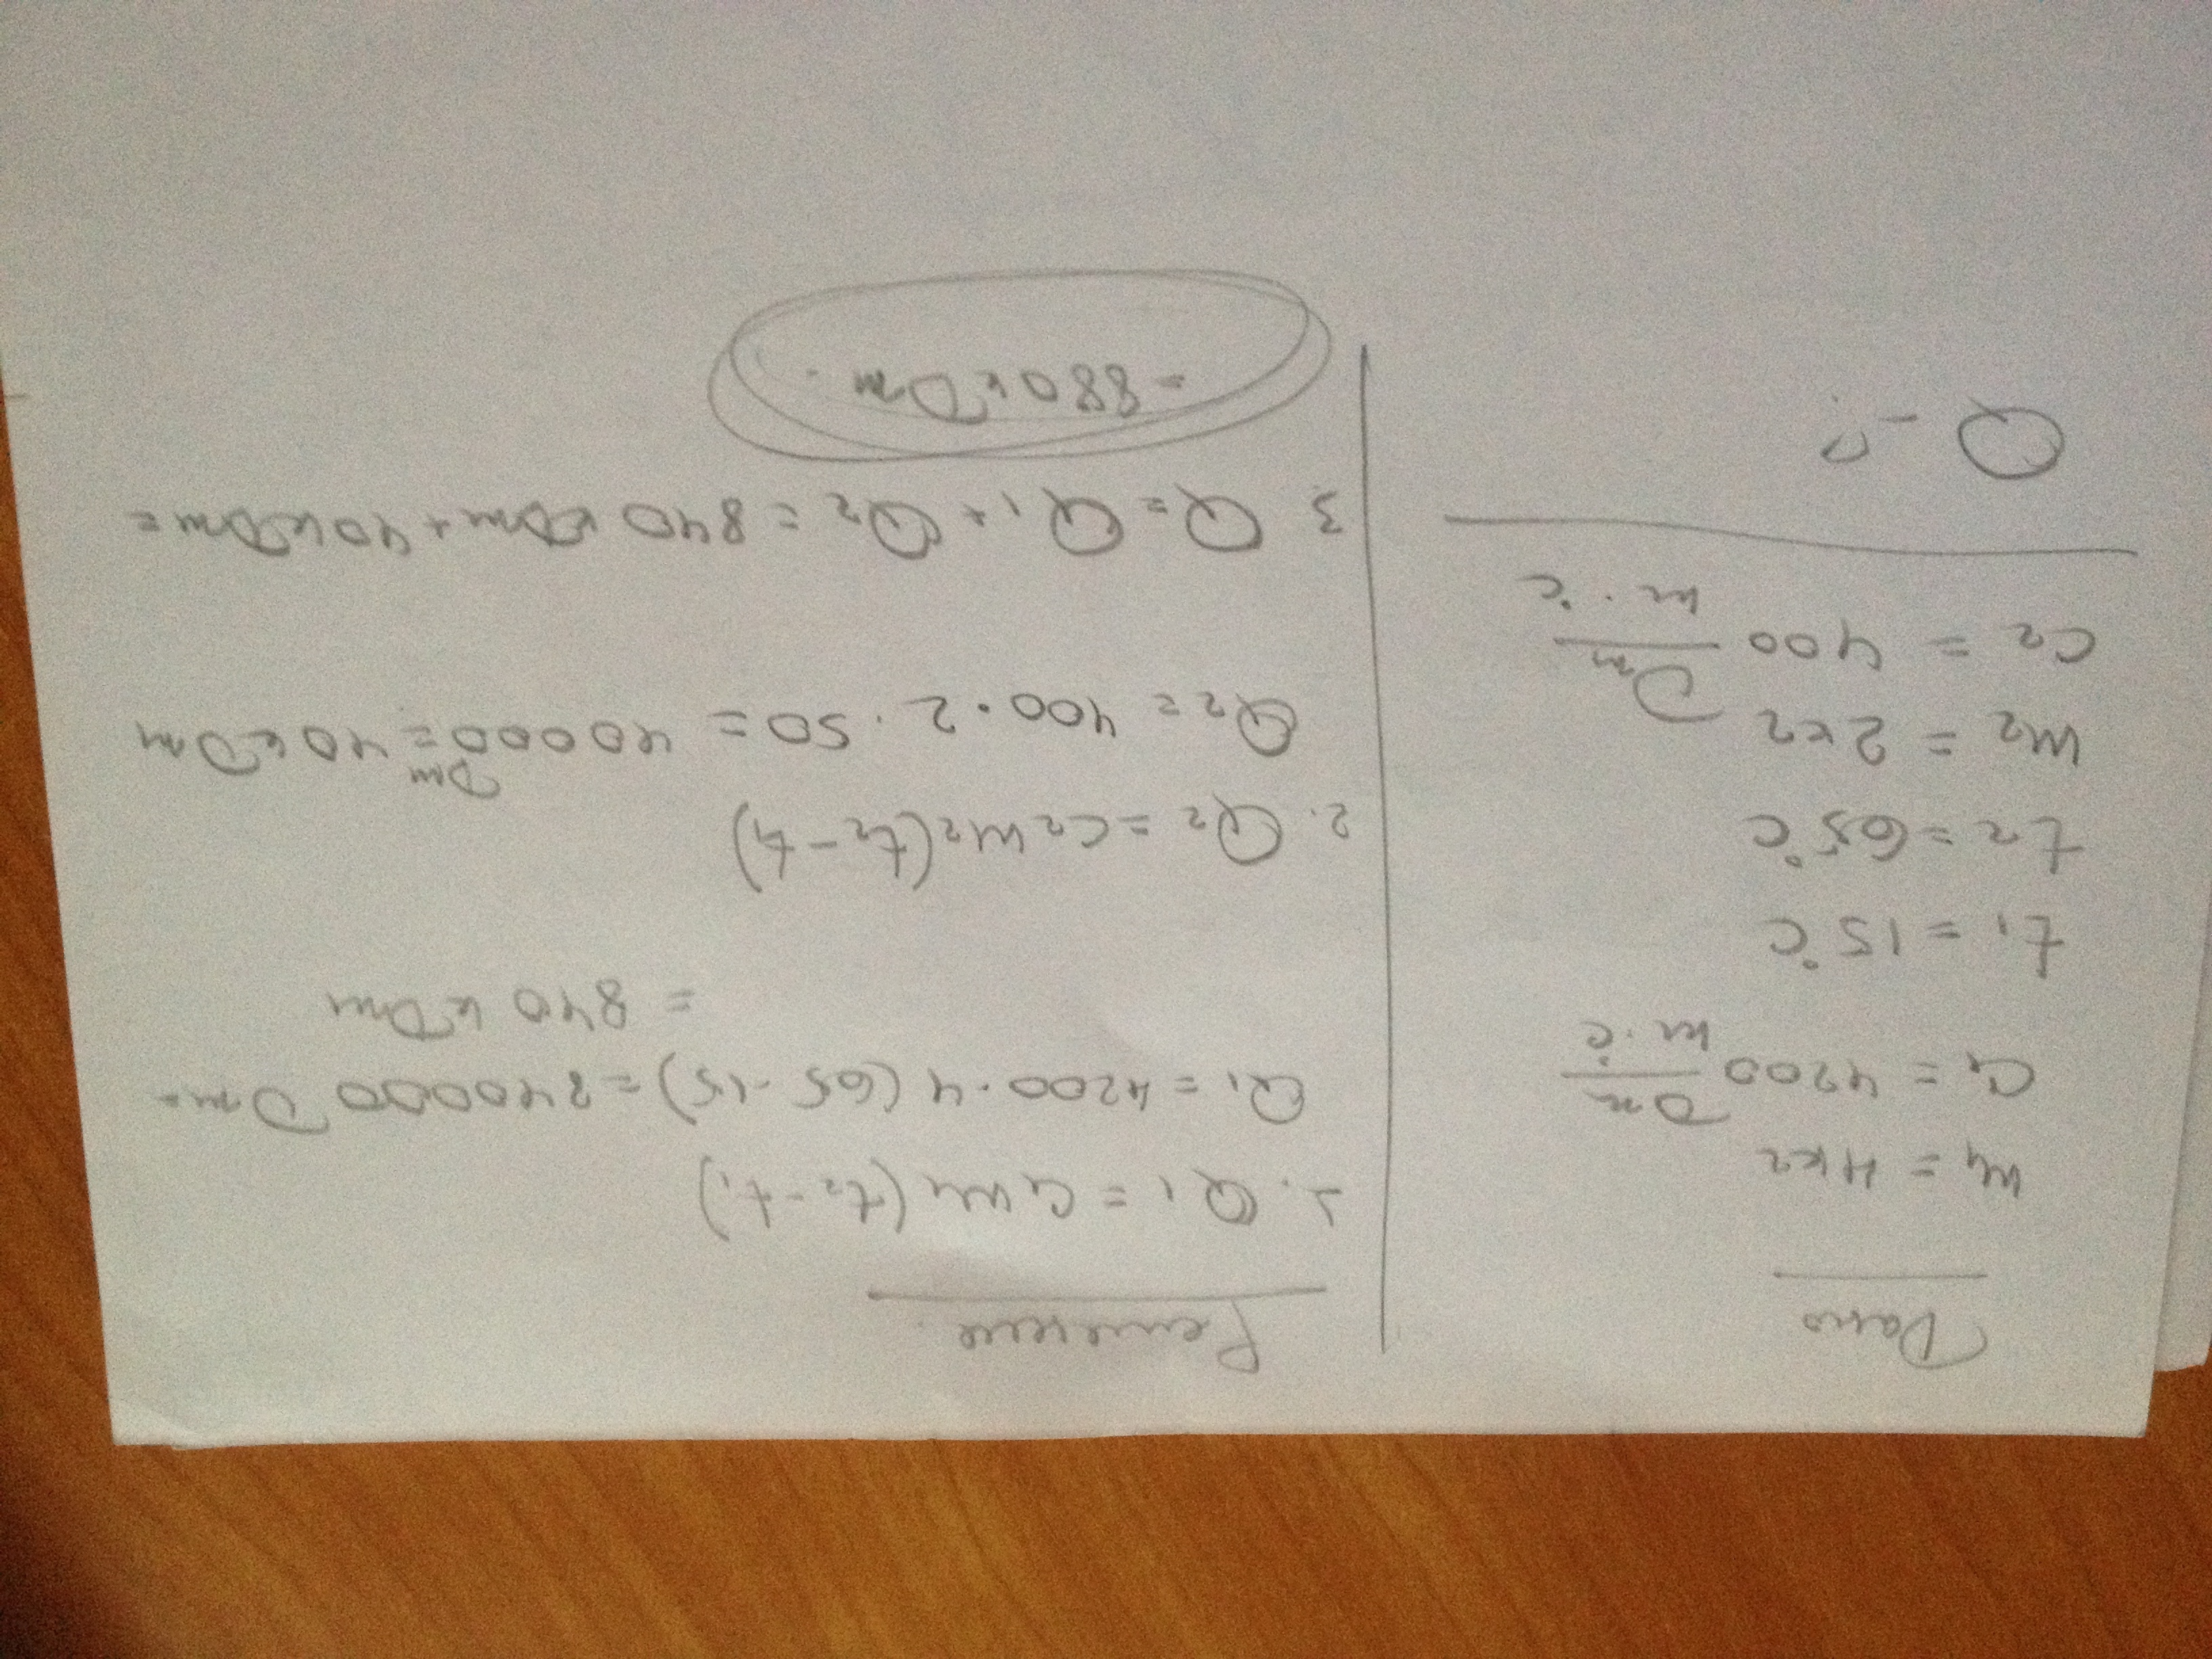 Дано
m₁ = 4 кг
c₁ = 4200 Дж/кг·°C
t₁ = 15°C
t₂ = 65°C
m₂ = 2 кг
c₂ = 400 Дж/кг·°C
Q - ?
Решение.
1. Q₁ = c₁m₁(t₂ - t₁)
Q₁ = 4200·4(65-15) = 840000 Дж=
= 840 кДж
2. Q₂ = c₂m₂(t₂ - t₁)
Q₂ = 400·2·50 = 40000 Дж = 40 кДж
3 Q = Q₁ + Q₂ = 840 кДж + 40 кДж =
= 880 кДж.